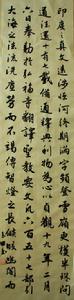 印度之真文遠涉恒河終期滿字頻登雪嶺更獲半珠問
道往還十有七載備通釋典利物為心以貞觀十九年二月
六日奉勅於弘福寺翻譯聖教要文凡六百五十七部引
大海之法流洗塵勞而不竭傳智燈之長焰皎幽闇而